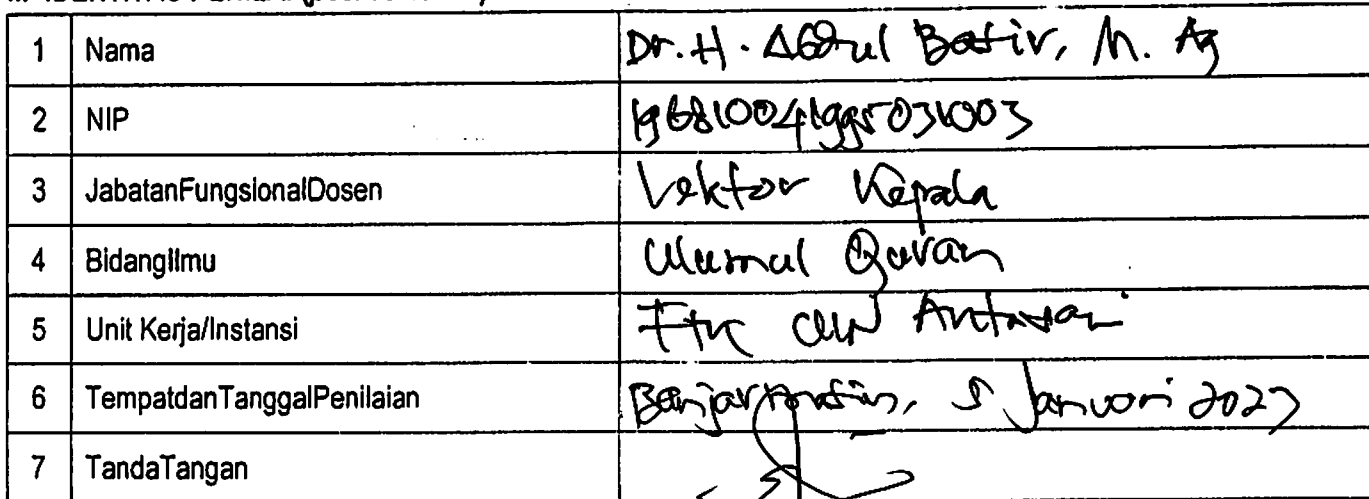 1 Nama Dr. H. Abdul Basir, M. Ag
2 NIP 196810041995031003
3 JabatanFungsionalDosen Lektor Kepala
4 BidangIlmu Ulumul Quran
5 Unit Kerja/Instansi FTK UIN Antasari
6 TempatdanTanggalPenilaian Banjarmasin, 5 Januari 2023
7 TandaTangan